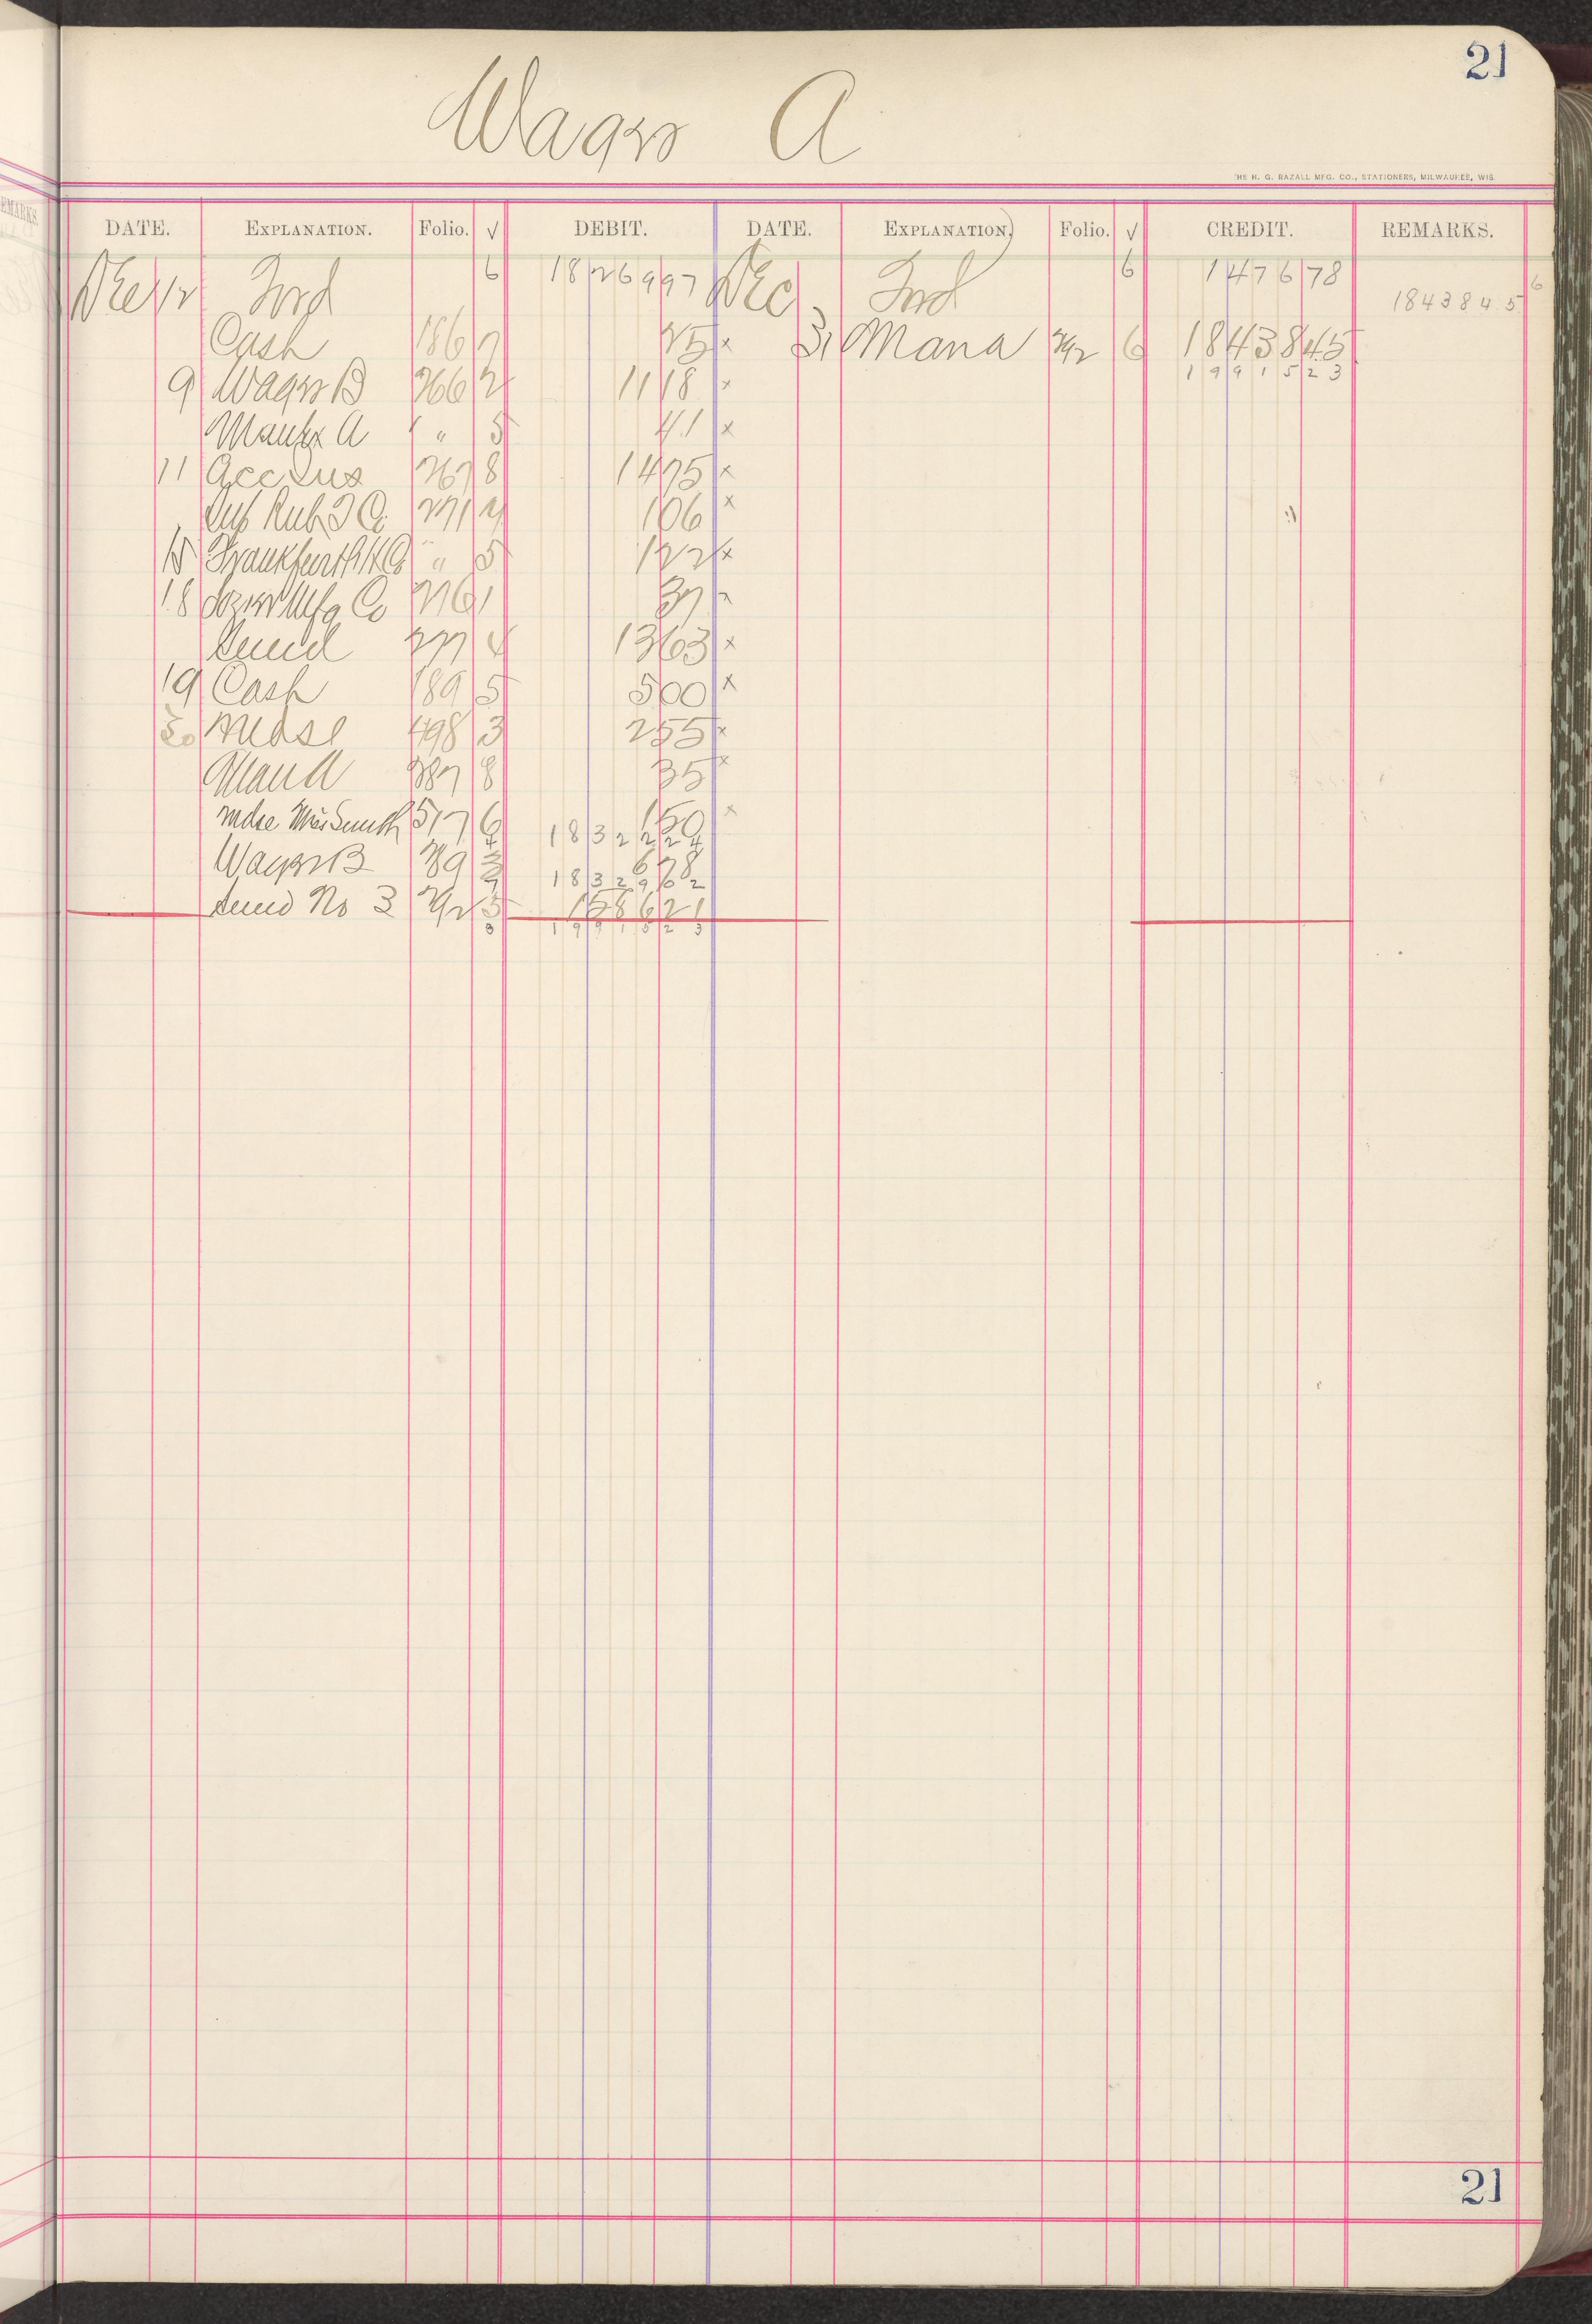 21
Wages A
THE H. G. RAZALL MFG. CO., STATIONERS, MILWAUKEE, WIS.
EMARKS.
DATE. EXPLANATION. Folio. √ DEBIT. DATE. EXPLANATION. Folio. √ CREDIT. REMARKS.
Dec 12 Ford 6 1826997 Dec Ford 6 147678 1843845 6
Cash 186 7 25 x 31 Mana 292 6 1843845
9 Wages B 266 2 1118 x 1991523
Manfx A " 5 41 x
11 Acc Ins 267 8 1475 x
Rub T Co 271 4 106 x
15 Frankfurth H Co " 5 122 x
18 Lozier Mfg Co 276 1 37 x
Sund 277 4 1363 x
19 Cash 189 5 500 x
20 Mdse 498 3 255 x
Man A 287 8 35 x
Mdse Misc Smith 517 6 150 x
4 1832224
Wages B 289 3 678
7 1832902
Sund No 3 292 5 158621
3 1991523
21